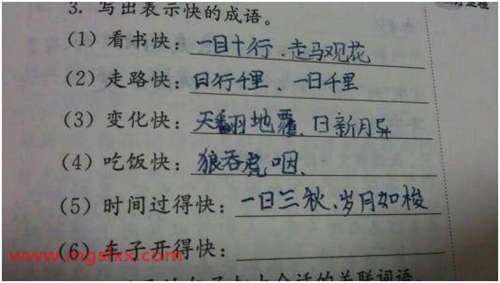 3. 写出表示快的成语。
(1) 看书快：一目十行、走马观花
(2) 走路快：日行千里、一日千里
(3) 变化快：天翻地覆、日新月异
(4) 吃饭快：狼吞虎咽、
(5) 时间过得快：一日三秋、岁月如梭
(6) 车子开得快：
www.mgsfxx.com